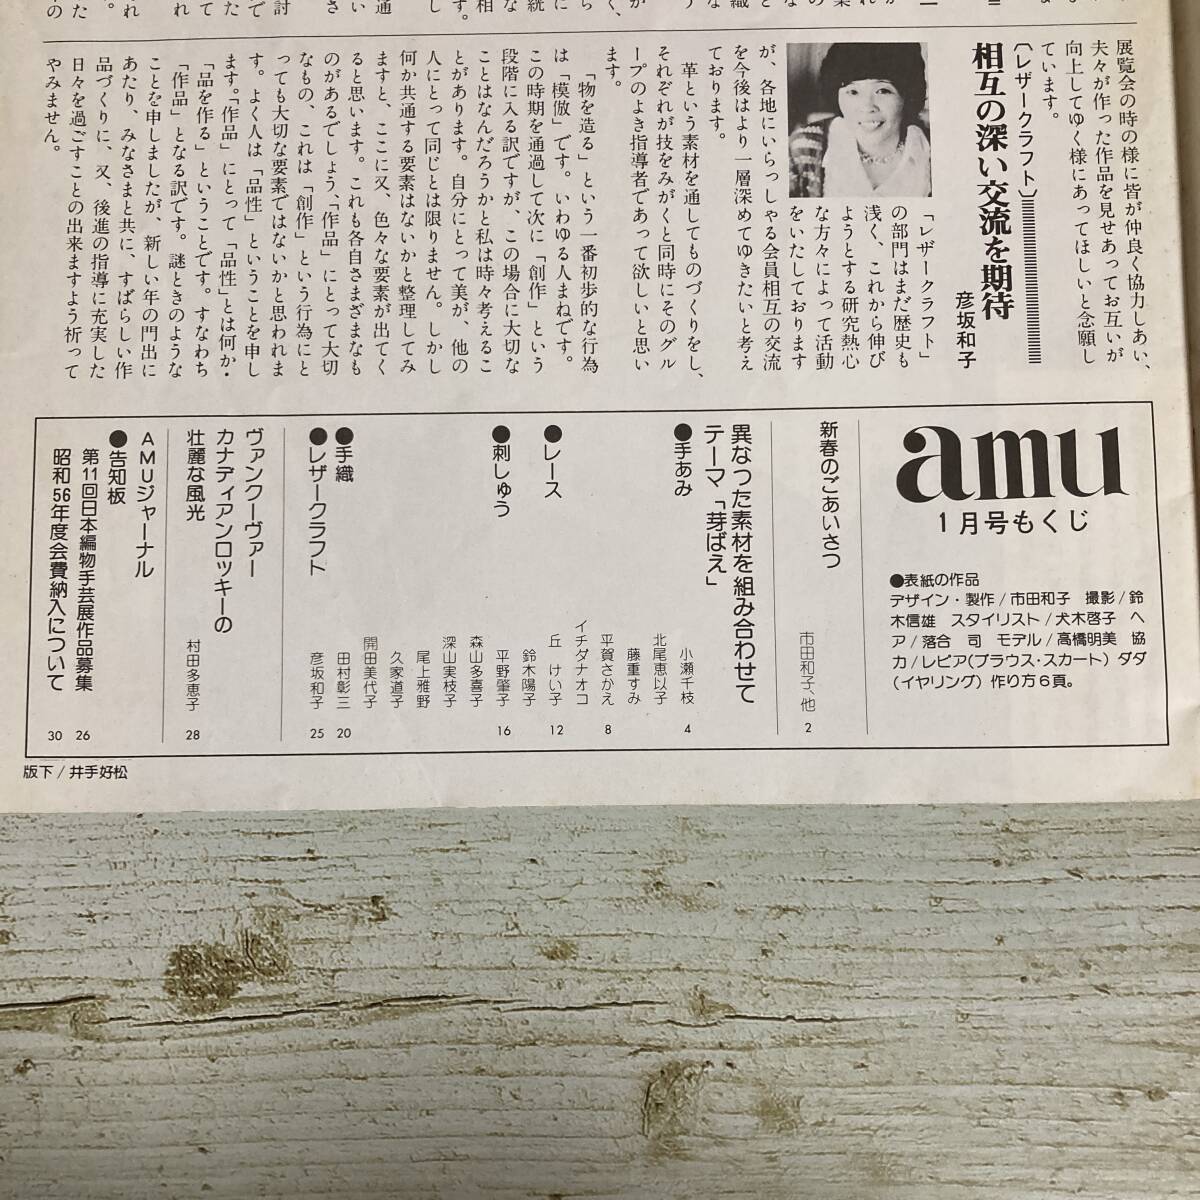 展覧会の時の様に皆が仲良く協力しあい、
夫々が作った作品を見せあってお互いが
向上してゆく様にあってほしいと念願し
ています。
〔レザークラフト〕
相互の深い交流を期待
彦坂和子
「レザークラフト」
の部門はまだ歴史も
浅く、これから伸び
ようとする研究熱心
な方々によって活動
をいたしております
が、各地にいらっしゃる会員相互の交流
を今後はより一層深めてゆきたいと考え
ております。
革という素材を通してものづくりをし、
それぞれが技をみがくと同時にそのグル
ープのよき指導者であって欲しいと思い
ます。
「物を造る」という一番初歩的な行為
は「模倣」です。いわゆる人まねです。
この時期を通過して次に「創作」という
段階に入る訳ですが、この場合に大切な
ことはなんだろうかと私は時々考えるこ
とがあります。自分にとって美が、他の
人にとって同じとは限りません。しかし
何か共通する要素はないかと整理してみ
ますと、ここに又、色々な要素が出てく
ると思います。これも各自さまざまなも
のがあるでしょう、「作品」にとって大切
なもの、これは「創作」という行為にと
っても大切な要素ではないかと思われま
す。よく人は「品性」ということを申し
ます。「作品」にとって「品性」とは何か・
「品を作る」ということです。すなわち
「作品」となる訳です。謎ときのような
ことを申しましたが、新しい年の門出に
あたり、みなさまと共に、すばらしい作
品づくりに、又、後進の指導に充実した
日々を過ごすことの出来ますよう祈って
やみません。
amu
1月号もくじ
●表紙の作品
デザイン・製作/市田和子 撮影/鈴
木信雄 スタイリスト/犬木啓子 ヘ
ア/落合 司 モデル/高橋明美 協
力/レピア(ブラウス・スカート) ダダ
(イヤリング) 作り方6頁。
新春のごあいさつ 市田和子、他 2
異なった素材を組み合わせて
テーマ「芽ばえ」
●手あみ 小瀬千枝 4
北尾恵以子
藤重すみ
平賀さかえ 8
イチダナオコ
●レース 丘 けい子 12
鈴木陽子
●刺しゅう 平野肇子 16
森山多喜子
深山実枝子
尾上雅野
久家道子
開田美代子
●手織 田村彰三 20
●レザークラフト 彦坂和子 25
ヴァンクーヴァー
カナディアンロッキーの
壮麗な風光 村田多恵子 28
AMUジャーナル
●告知板
第11回日本編物手芸展作品募集 26
昭和56年度会費納入について 30
版下/井手好松